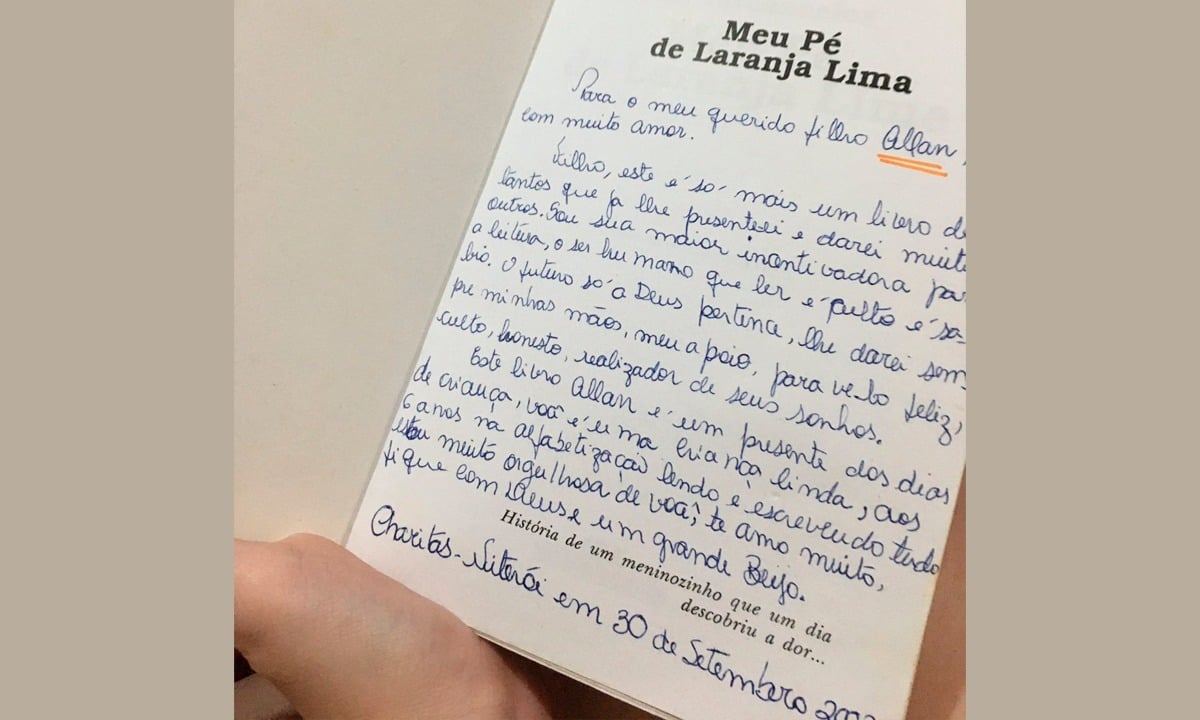 Meu Pé
de Laranja Lima
Para o meu querido filho Allan,
com muito amor.
Filho, este é só mais um livro de
tantos que ja lhe presenteei e darei muito
outros. Sou sua maior incentivadora par
a leitura, o ser humano que ler é culto é sá-
bio. O futuro só a Deus pertence, lhe darei sem-
pre minhas mãos, meu apoio, para ve-lo feliz,
culto, honesto, realizador de seus sonhos.
Este livro Allan é um presente dos dias
de criança, você é uma criança linda, aos
6 anos na alfabetização lendo e escrevendo tudo
estou muito orgulhosa de você, te amo muito,
fique com Deus e um grande Beijo.
História de um meninozinho que um dia
descobriu a dor...
Charitas - Niterói em 30 de Setembro